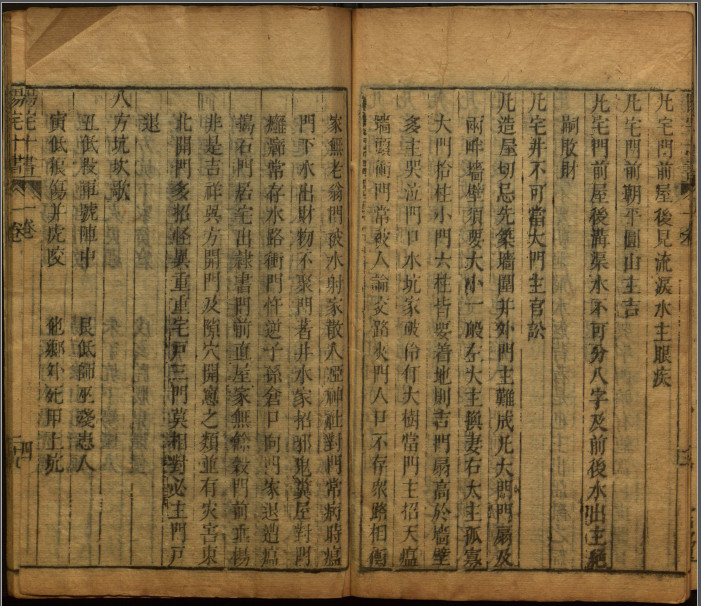 凢宅門前屋後見流淚水主眼疾
凢宅門前朝平圓山主吉
凢宅門前屋後溝渠水不可分八字及前後水出主絕
嗣敗財
凢宅井不可當大門主官訟
凢造屋切忌先築墻圍并外門主難成凢大門門扇及
兩畔墻壁須要大小一般左大主換妻右大主孤寡
大門柏柱小門六柱皆要着地則吉門扇高於墻壁
多主哭泣門口水坑家破伶仃大樹當門主招天瘟
墻頭衝門常被人論交路夾門人口不存眾路相衝
家無老翁門被水射家散人啞神社對門常病時瘟
門下水出財物不聚門着井水家招邪鬼糞屋對門
癰癤常存水路衝門忤逆子孫倉口向門家退遭瘟
搗石門居宅出隸書門前直屋家無餘穀門前垂楊
非是吉祥巽方開門及隙穴開窓之類並有灾害東
北開門多招怪異重重宅戶三門莫相對必主門戶
退
八方坑坎歌
丑低殺軍號陣中　艮低師巫殘患人
寅低狼傷并虎咬　他鄉外死甲上坑
陽宅十書
一卷
四